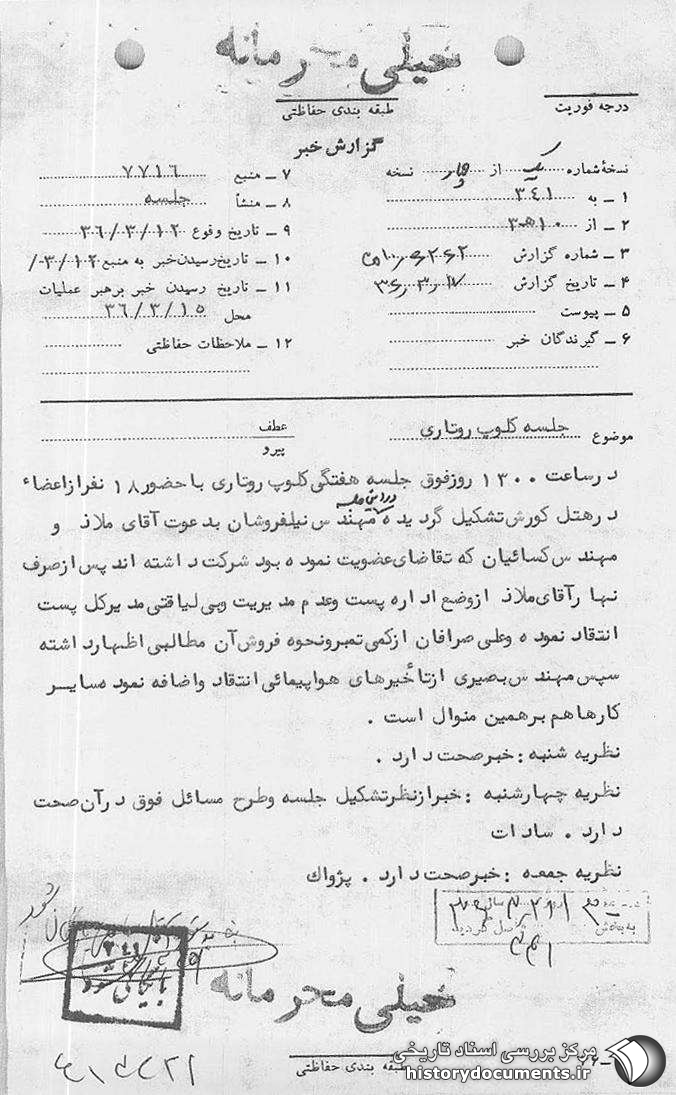 خیلی محرمانه
درجه فوریت
طبقه بندی حفاظتی
گزارش خبر
نسخهٔ شماره یک از چهار نسخه
۱ ـ به ۳۴۱
۲ ـ از
۳ ـ شماره گزارش
۴ ـ تاریخ گزارش
۵ ـ پیوست
۶ ـ گیرندگان خبر
۷ ـ منبع ۷۷۱۶
۸ ـ منشأ جلسه
۹ ـ تاریخ وقوع ۳۶/۳/۱۲
۱۰ ـ تاریخ رسیدن خبر به منبع ۳/۱۲/
۱۱ ـ تاریخ رسیدن خبر برهبر عملیات
محل ۳۶/۳/۱۵
۱۲ ـ ملاحظات حفاظتی
موضوع جلسه کلوپ روتاری
عطف
پیرو
درساعت ۱۳۰۰ روزفوق جلسه هفتگی کلوپ روتاری با حضور ۱۸ نفرازاعضاء
درهتل کورش تشکیل گردیده در این جلسه مهندس نیلفروشان بدعوت آقای ملاذ و
مهندس کسائیان که تقاضای عضویت نموده بود شرکت داشته اند پس ازصرف
نهار آقای ملاذ ازوضع اداره پست وعدم مدیریت وبی لیاقتی مدیرکل پست
انتقاد نموده وعلی صرافان ازکمی تمبرونحوه فروش آن مطالبی اظهارداشته
سپس مهندس بصیری ازتأخیرهای هواپیمائی انتقاد واضافه نموده سایر
کارهاهم برهمین منوال است .
نظریه شنبه : خبرصحت دارد .
نظریه چهارشنبه : خبرازنظرتشکیل جلسه وطرح مسائل فوق درآن صحت
دارد . سادات
نظریه جمعه : خبرصحت دارد . پژواك
به بخش واصل گردید
۳۴۱
بایگانی شود
خیلی محرمانه
طبقه بندی حفاظتی
مرکز بررسی اسناد تاریخی
historydocuments.ir